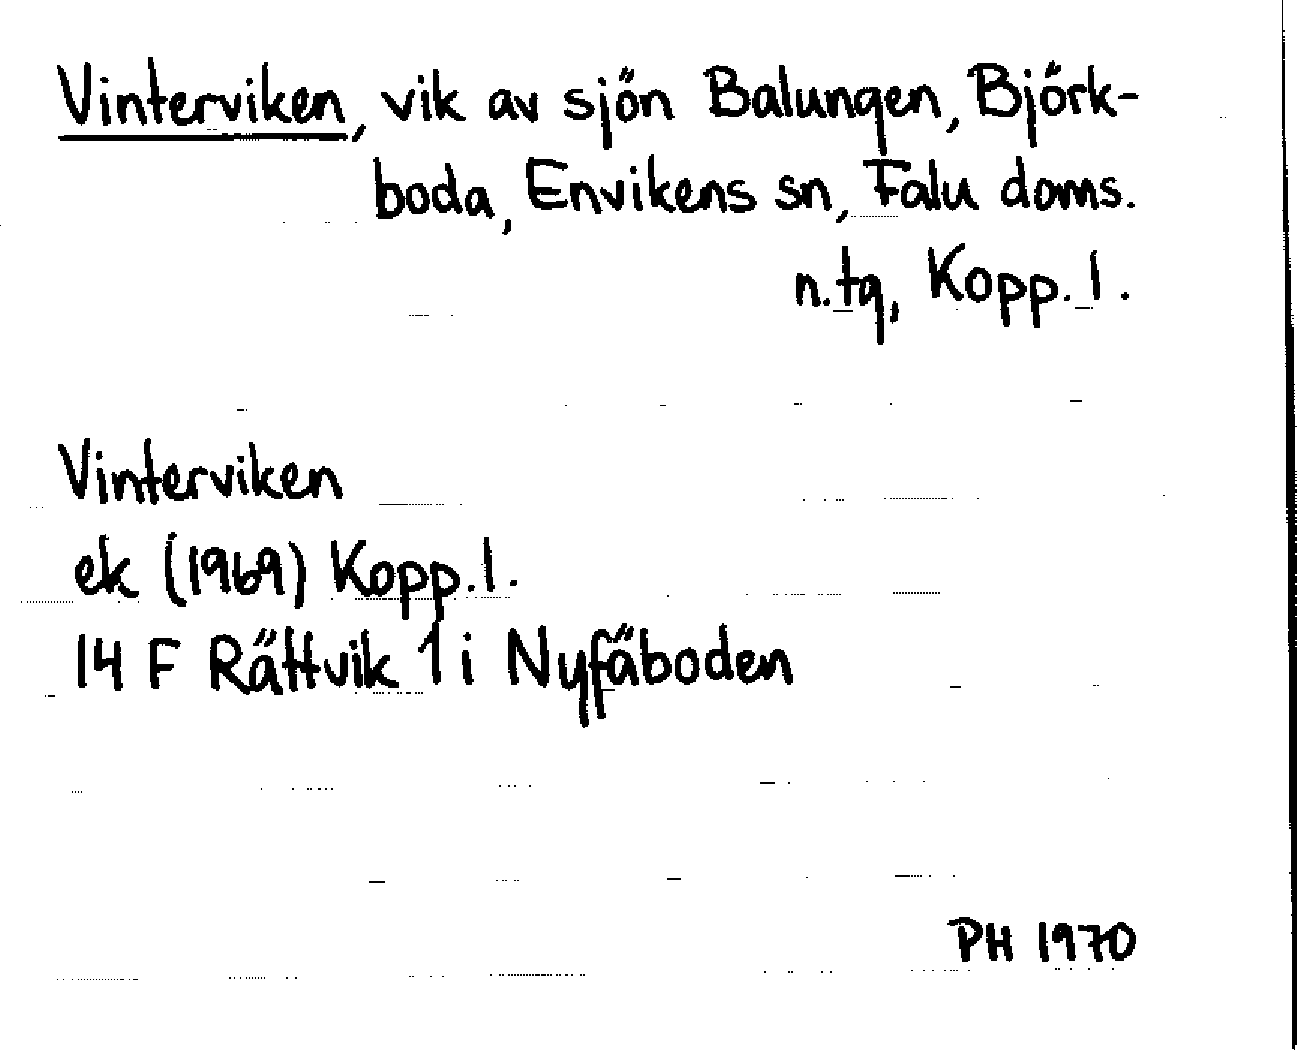 Vinterviken, vik av sjön Balungen, Björk-
boda, Envikens sn, Falu doms.
n.tg, Kopp. l.
Vinterviken
ek (1969) Kopp. l.
14 F Rättvik 1 i Nyfäboden
PH 1970